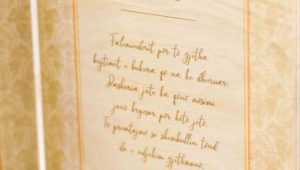 Faleminderit për të gjitha
kujtimet e bukura që na ke dhuruar.
Dashuria jote ka qenë mësimi
jonë kryesor për këtë jetë.
Të premtojmë se shembullin tënd
do e ndjekim gjithmonë.